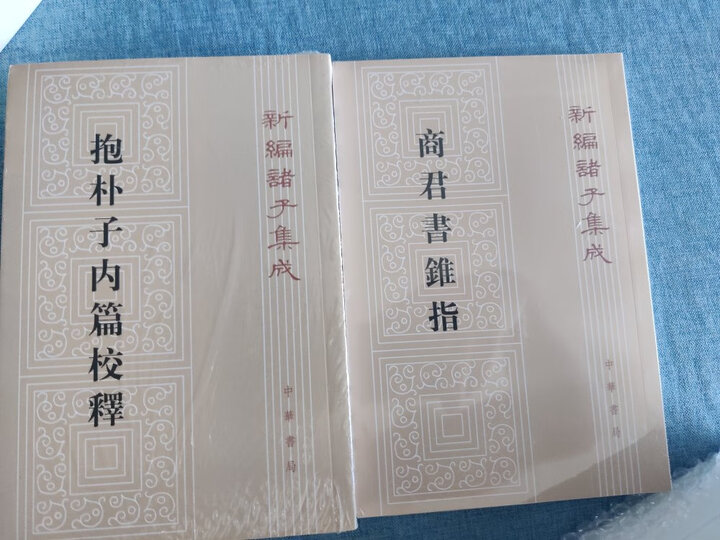 新編諸子集成
抱朴子内篇校釋
中華書局
新編諸子集成
商君書錐指
中華書局